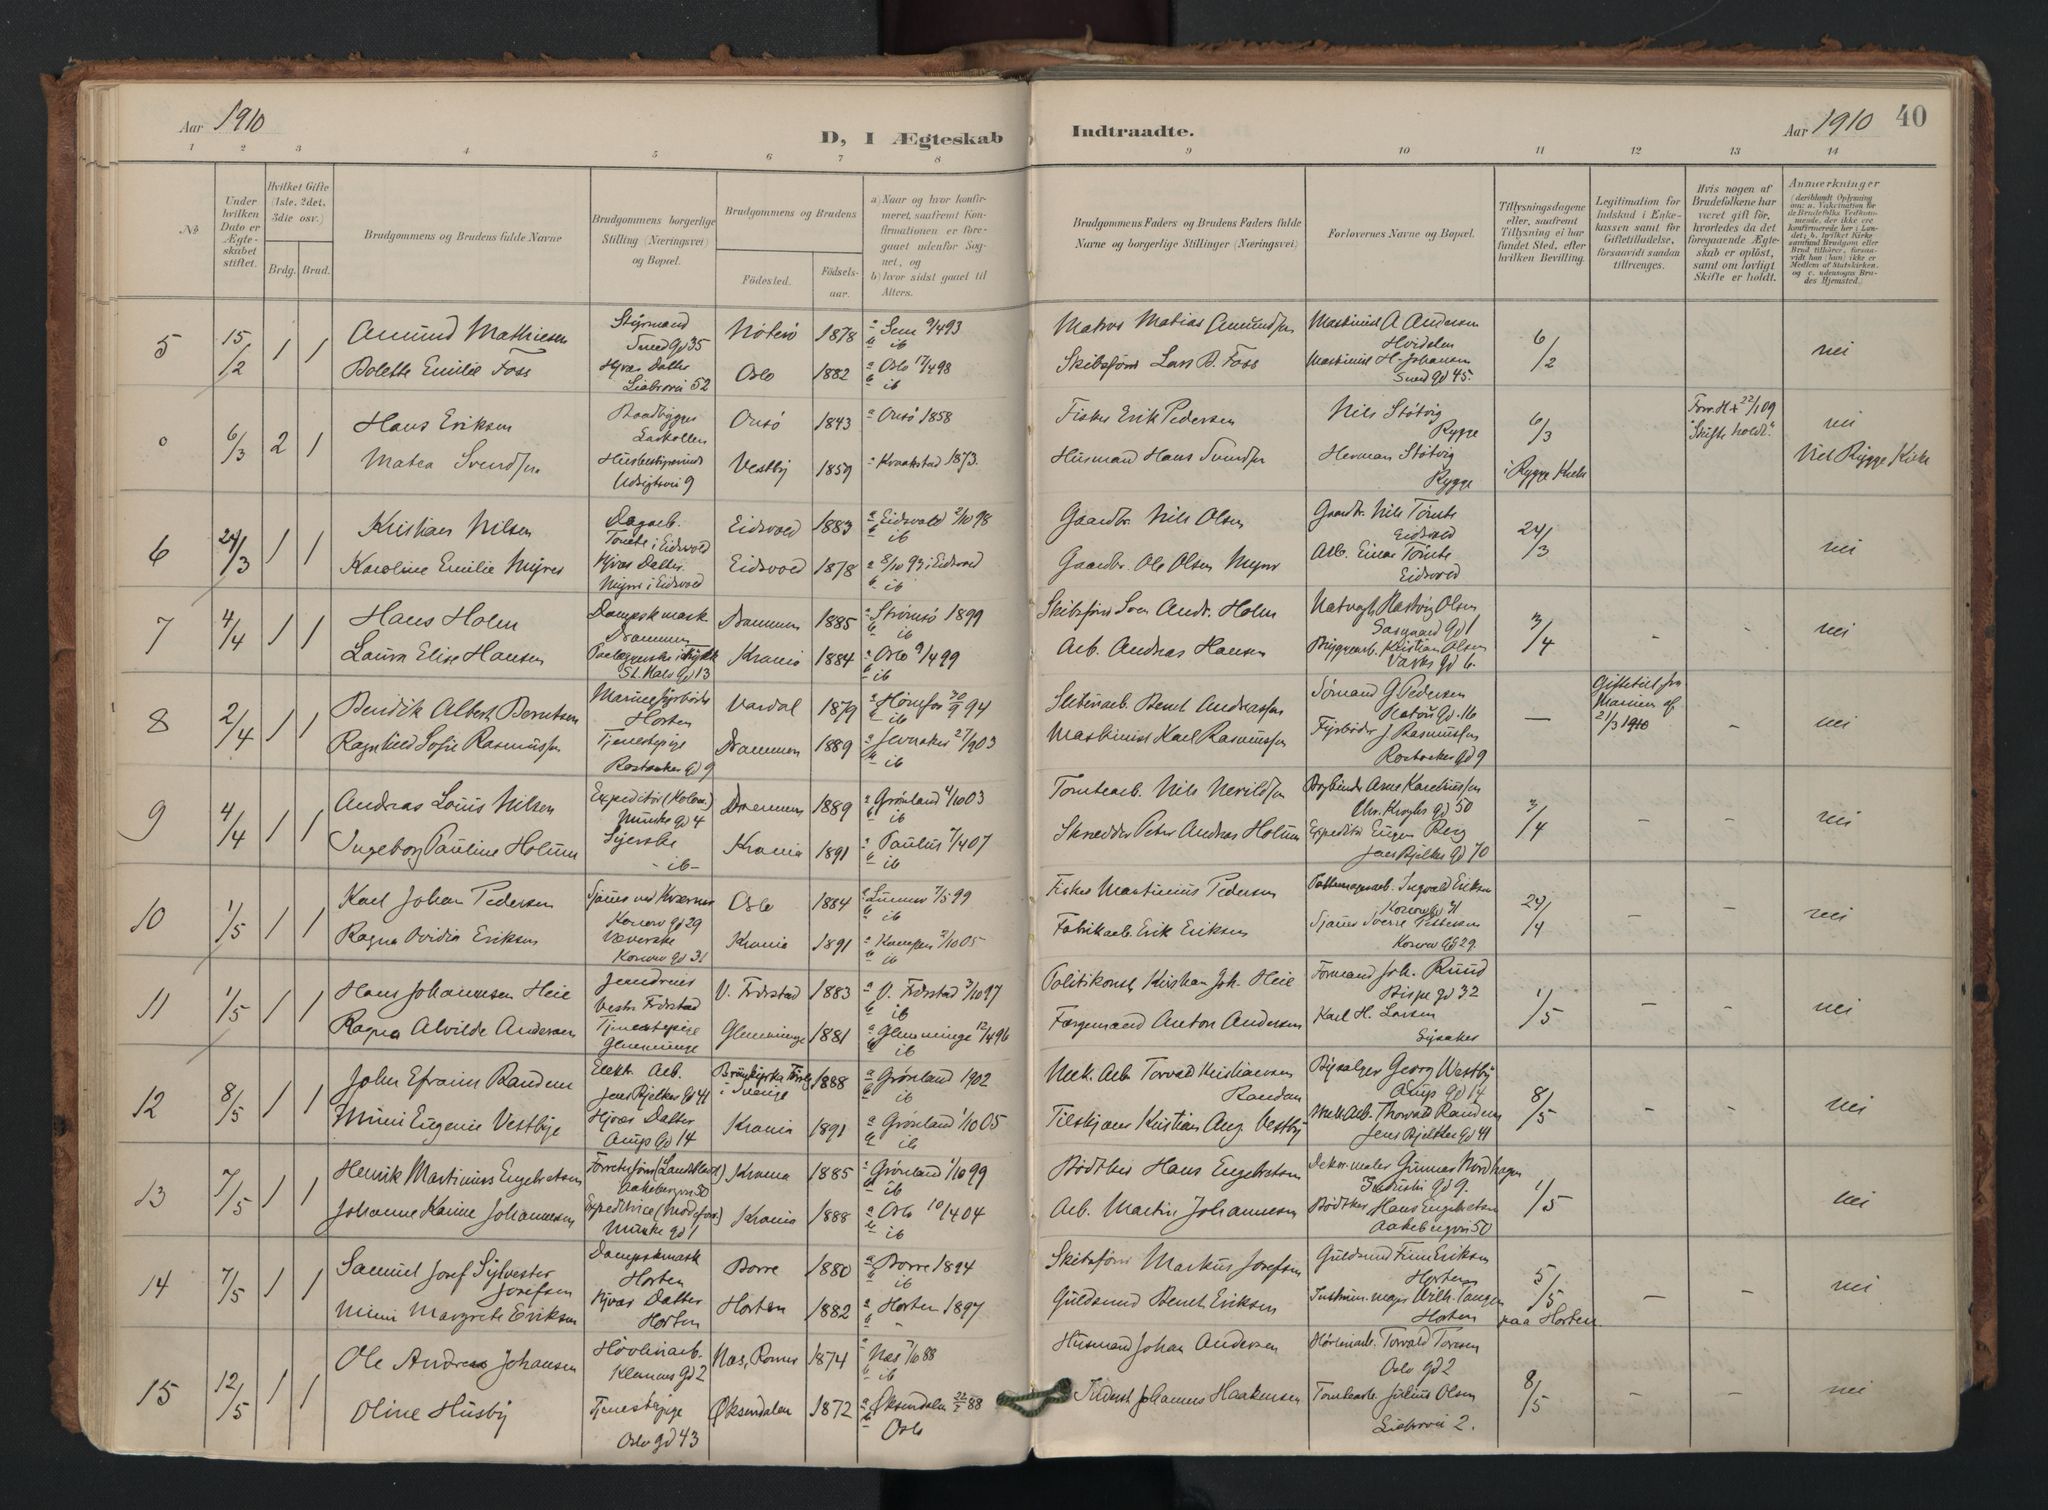 Aar 1910
D, I Ægteskab
Indtraadte.
Aar 1910
40
1 2 3 4 5 6 7 8 9 10 11 12 13 14
No
Under hvilken Dato er Ægteskabet stiftet.
Hvilket Gifte (1ste, 2det, 3die osv.)
Brdg. Brud.
Brudgommens og Brudens fulde Navne
Brudgommens borgerlige Stilling (Næringsvei) og Bopæl.
Brudgommens og Brudens
Födested.
Födselsaar.
a) Naar og hvor konfirmeret, saafremt Konfirmationen er foregaaet udenfor Sognet, og
b) hvor sidst gaaet til Alters.
Brudgommens Faders og Brudens Faders fulde Navne og borgerlige Stillinger (Næringsvei)
Forlovernes Navne og Bopæl.
Tillysningsdagene eller, saafremt Tillysning ei har fundet Sted, efter hvilken Bevilling.
Legitimation for Indskud i Enkekassen samt for Giftetilladelse, forsaavidt saadan tiltrænges.
Hvis nogen af Brudefolkene har været gift för, hvorledes da det foregaaende Ægteskab er oplöst, samt om lovligt Skifte er holdt.
Anmærkninger
5 15/2 1 1 Amund Mathiesen Styrmand Smedgd 35 Nøterø 1878 a Sem 9/4 93 b ib Matros Matias Amundsen Maskinist A Andersen Hvidsten 6/2 nei
Bolette Emilie Foss Hjvær. Datter Liabrovei 52 Oslo 1882 a Oslo 17/4 98 b ib Skibsfører Lars B. Foss Maskinist H. Johansen Smedgd 45.
0 6/3 2 1 Hans Eriksen Baadbygger Larkollen Onsø 1843 a Onsø 1858 Fisker Erik Pedersen Nils Støtvig Rygge 6/3 Forr. H + 22/1 09 "Skifte holdt". nei
Matea Svendsen Husbestyrerinde Udsigtsvei 9 Vestby 1859 a Kraakstad 1873. Husmand Hans Svendsen Herman Støtvig Rygge i Rygge Kirke Viet Rygge Kirke
6 24/3 1 1 Kristian Nilsen Dagarb. Tønte i Eidsvold Eidsvold 1883 a Eidsvold 2/10 98 b ib Gaardbr. Nils Olsen Gaardbr. Nils Tønte Eidsvold 24/3 nei
Karoline Emilie Myrer Hjvær Datter Myrer i Eidsvold Eidsvold 1878 a 8/10 93 i Eidsvold b ib Gaardbr. Ole Olsen Myrer Arb. Einar Tønte Eidsvold
7 4/4 1 1 Hans Holm Dampsk.mask Drammen Drammen 1885 a Strømsø 1899 b ib Skibsfører Sven Andr. Holm Natvagt Hartvig Olsen Gd 1 3/4 - - nei
Laura Elise Hansen St. Halv Gd 13 Krania 1884 a Oslo 9/4 99 b ib Arb. Andreas Hansen Bryggearb. Kristian Olsen Gd 6.
8 2/4 1 1 Bendik Albert Berntsen Marinefyrbøder Horten Vardal 1879 a Hønefos 30/9 94 b ib Skibsarb. Bernt Andreassen Sømand G. Pedersen gd. 16 — Giftetill. fra Marinen af 21/3 1910 - nei
Ragnhild Sofie Rasmussen Tjenestepige Rostocker gd 9 Drammen 1889 a Jevnaker 27/9 03 b ib Maskinist Karl Rasmussen Fyrbøder J Rasmussen Rostocker gd 9
9 4/4 1 1 Andreas Louis Nilsen Expeditør (Kolon.) Munke gd 4 Drammen 1889 a Grønland 4/10 03 b ib Tomtearb. Nils Nerildsen Bogbinder Arne Karelinussen Chr. Kroghs gd 50 3/4 - - nei
Ingeborg Pauline Holum Syerske - ib - Krania 1891 a Paulus 7/4 07 b ib Skrædder Peter Andreas Holum Expeditør Eugen Berg Jens Bjelkes gd 70
10 1/5 1 1 Karl Johan Pedersen Konow gd 29 Oslo 1884 a Lunner 7/5 99 b ib Fisker Martinius Pedersen Ingvald Eriksen Konow gd 31 24/4 - - nei
Ragna Ovidia Eriksen Væverske Konow gd 31 Krania 1891 a Kampen 2/10 05 b ib Fabrikarb. Erik Eriksen Sjauer Sverre Pettersen Konow gd 29.
11 1/5 1 1 Hans Johannesen Heie Jerndreier Vestr. Fredrstad V. Fredrstad 1883 a V. Fredrstad 3/10 97 b ib Politikonst. Kristian Joh. Heie Formand Joh. Ruud Bispe gd 32 1/5 - - nei
Ragna Alvilde Andersen Tjenestepige Glemminge Glemminge 1881 a Glemminge 12/4 96 b ib Færgemand Anton Andersen Karl H. Larsen
12 8/5 1 1 John Efraim Randem Elektr. Arb. Jens Bjelkes gd 41 i Sverige 1888 a Grønland 1902 b ib Mek. Arb. Torvald Kristiansen Randem Bysælger Georg Westby Aamp gd 14 8/5 - - nei
Mimi Eugenie Vestbye Hjvær Datter Aamp Gd 14 Krania 1891 a Grønland 1/10 05 b ib Kristian Aug. Vestby Mek Arb. Thorvald Randem Jens Bjelkes gd 41
13 7/5 1 1 Henrik Martinius Engebretsen Forretnfører (Landsbladet) Aakebergvn 50 Krania 1885 a Grønland 1/10 99 b ib Bødtker Hans Engebretsen Dekor.maler Gunnar Nordhagen Industri gd 9. 1/5 nei
Johanne Karine Johannesen Expeditrice Munke gd 1 Krania 1888 a Oslo 10/4 04 b ib Arb. Martin Johannesen Bødtker Hans Engebretsen Aakebergvn 50
14 7/5 1 1 Samuel Josef Sylvester Josefsen Dampskmask Horten Borre 1880 a Borre 1894 b ib Skibsfører Markus Josefsen Guldsmed Finn Eriksen Horten 5/5 - - nei
Mimi Margrete Eriksen Hjvær Datter Horten Horten 1882 a Horten 1897 b - Guldsmed Bernt Eriksen Instrum.mager Wilh. Tangen Horten paa Horten
15 12/5 1 1 Ole Andreas Johansen Høvleriarb. Klemens Gd 2 Næs, Romer. 1874 a Næs 7/10 88 b ib Husmand Johan Andersen Høvleriarb. Torvald Toresen Oslo gd 2 8/5 - - nei
Oline Husby Tjenestepige Oslo gd 43 Øksendalen 1872 a Øksendalen 22/7 88 b Oslo Johannes Haakensen Tomtearb. Julius Olsen Liabrovei 2.